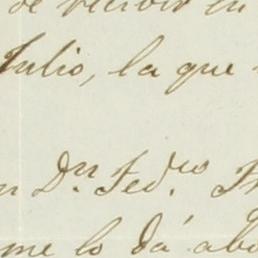 de recibir en
Julio, la que
Dn. Fedco.
me lo dá abo